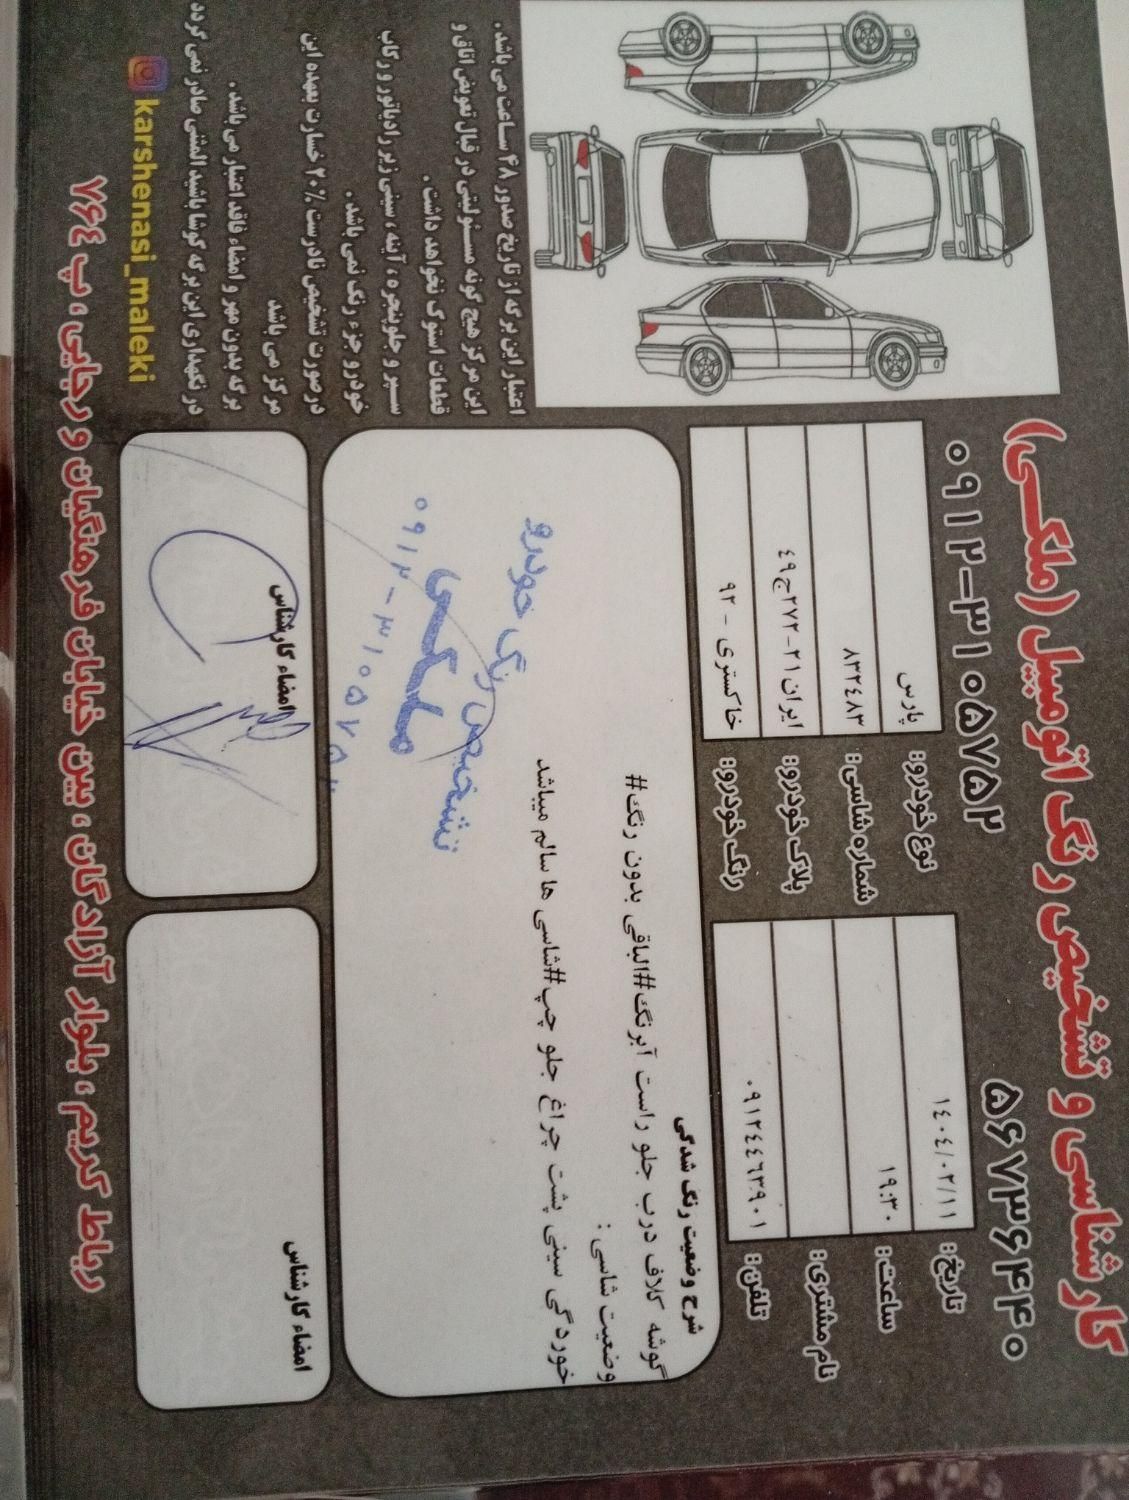 کارشناسی و تشخیص رنگ اتومبیل (ملکی)
۵۶۷۳۶۴۴۰
۰۹۱۲-۳۱۰۵۷۵۲
تاریخ: ۱٤۰٤/۰۲/۱۱
ساعت: ۱۹:۳۰
نام مشتری:
تلفن: ۰۹۱۲٤٤٦۳۹۰۱
نوع خودرو: پارس
شماره شاسی: ۸۳۲٤۸۳
پلاک خودرو: ایران ۲۱-۲۷۲ج٤۹
رنگ خودرو: خاکستری - ۹۲
شرح وضعیت رنگ شدگی
گوشه کلاف درب جلو راست آبرنگ#الباقی بدون رنگ#
وضعیت شاسی:
خوردگی سینی پشت چراغ جلو چپ#شاسی ها سالم میباشد
تشخیص رنگ خودرو
ملکی
۰۹۱۲-۳۱۰۵۷۵۲
امضاء کارشناس
امضاء کارشناس
اعتبار این برگه از تاریخ صدور ۴۸ ساعت می باشد.
این مرکز هیچ گونه مسئولیتی در قبال تعویض اتاق و
قطعات استوک نخواهد داشت.
سپر و جلوپنجره، آینه، سینی زیر رادیاتور و رکاب
خودرو جزء رنگ نمی باشد.
در صورت تشخیص نادرست ۲۰٪ خسارت بعهده این
مرکز می باشد
برگه بدون مهر و امضاء فاقد اعتبار می باشد.
در نگهداری این برگه کوشا باشید المثنی صادر نمی گردد
karshenasi_maleki
رباط کریم، بلوار آزادگان، بین خیابان فرهنگیان و رجایی، پ ۷٦٤